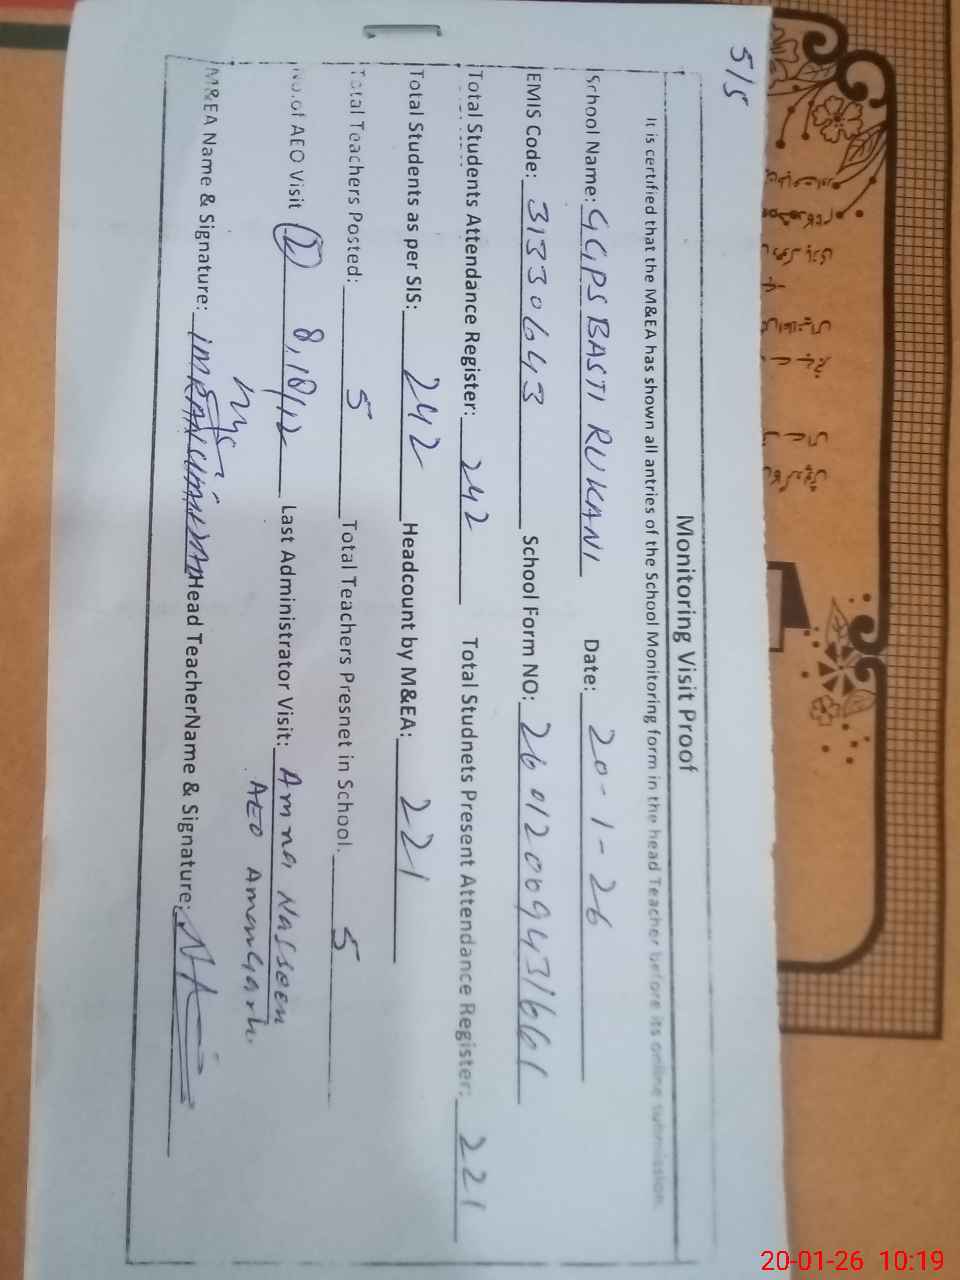 5/5
Monitoring Visit Proof
It is certified that the M&EA has shown all antries of the School Monitoring form in the head Teacher before its online submission.
School Name: GGPS BASTI RUKANI Date: 20-1-26
EMIS Code: 31330643 School Form NO: 26012009431661
Total Students Attendance Register: 242 Total Studnets Present Attendance Register: 221
Total Students as per SIS: 242 Headcount by M&EA: 221
Total Teachers Posted: 5 Total Teachers Presnet in School. 5
No.of AEO Visit 2 8,18/12 Last Administrator Visit: Amna Nasseen
AEO Amangarh
M&EA Name & Signature: IMRAN Head TeacherName & Signature:
20-01-26 10:19